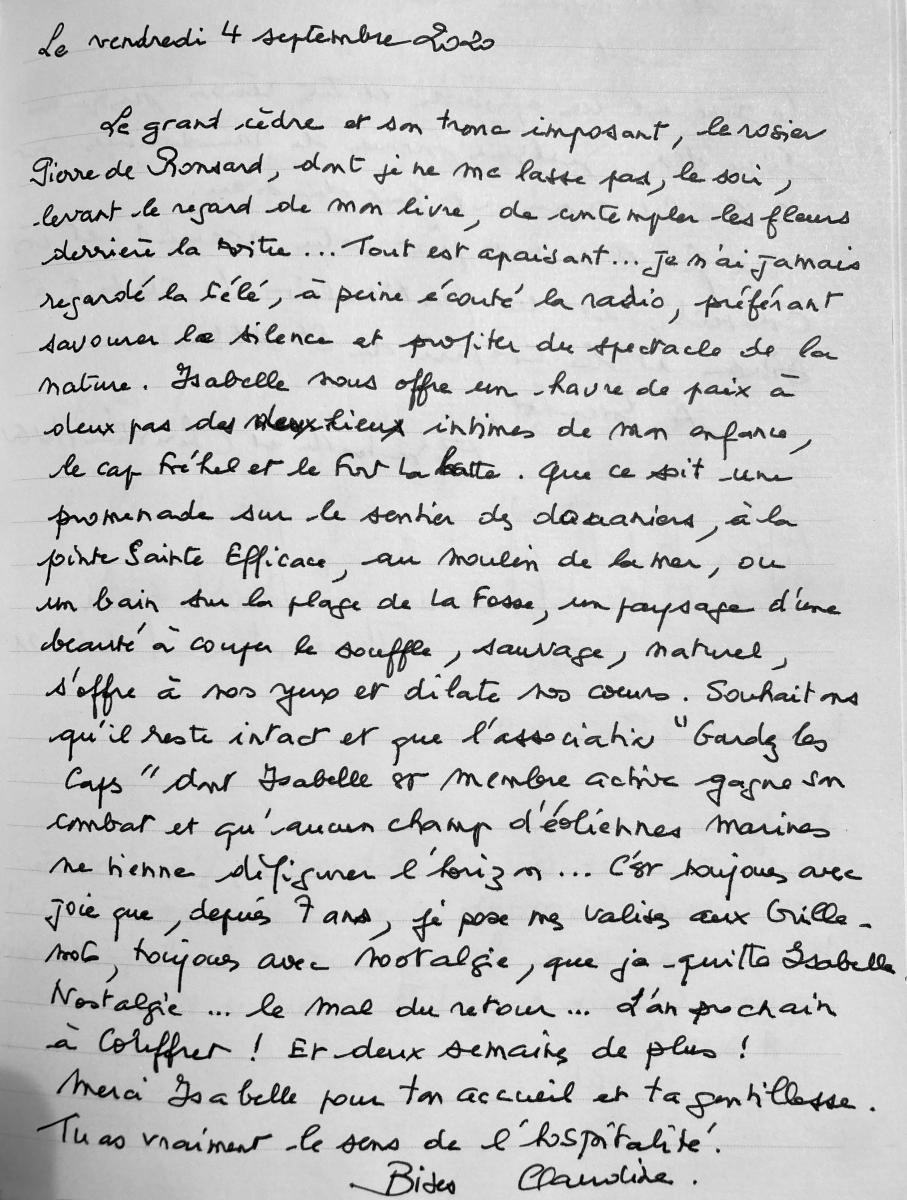 Le vendredi 4 septembre 2020
Le grand cèdre et son tronc imposant, le rosier
Pierre de Ronsard, dont je ne me lasse pas, le soir,
levant le regard de mon livre, de contempler les fleurs
derrière la vitre... Tout est apaisant... Je n'ai jamais
regardé la télé, à peine écouté la radio, préférant
savourer le silence et profiter du spectacle de la
nature. Isabelle nous offre un havre de paix à
deux pas des deux lieux intimes de mon enfance,
le cap Fréhel et le Fort La Latte. Que ce soit une
promenade sur le sentier des douaniers, à la
pointe Sainte Efficace, au moulin de la mer, ou
un bain sur la plage de La Fosse, un paysage d'une
beauté à couper le souffle, sauvage, naturel,
s'offre à nos yeux et dilate nos coeurs. Souhaitons
qu'il reste intact et que l'association "Gardez les
Caps" dont Isabelle est membre active gagne son
combat et qu'aucun champ d'éoliennes marines
ne vienne défigurer l'horizon... C'est toujours avec
joie que, depuis 7 ans, je pose mes valises aux Grille-
mots, toujours avec nostalgie, que je quitte Isabelle
Nostalgie... le mal du retour... L'an prochain
à Coluffret ! Et deux semaines de plus !
Merci Isabelle pour ton accueil et ta gentillesse.
Tu as vraiment le sens de l'hospitalité.
Bises Claudine.